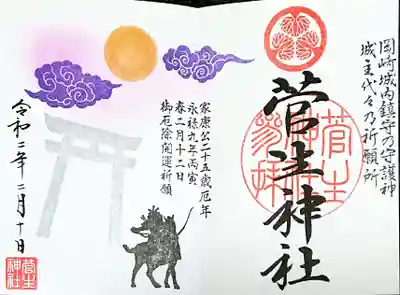 岡崎城内鎮守の守護神
城主代々乃祈願所
菅生神社
家康公二十五歳厄年
永禄九年丙寅
春二月十二日
御厄除開運祈願
令和二年二月十日
菅生
神社